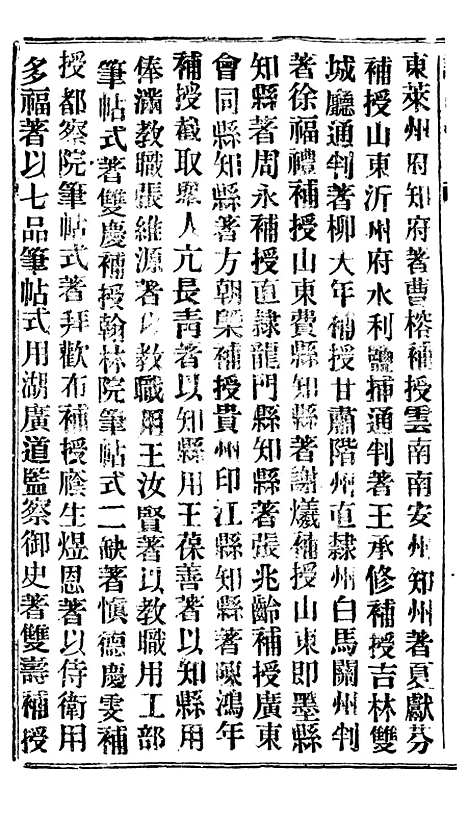 東萊州府知府著曹榕補授雲南南安州知州著夏獻芬
補授山東沂州府水利鹽捕通判著王承修補授吉林雙
城廳通判著柳大年補授甘肅階州直隸州白馬關州判
著徐福禮補授山東費縣知縣著謝爔補授山東即墨縣
知縣著周永補授直隸龍門縣知縣著張兆齡補授廣東
會同縣知縣著方朝槼補授貴州印江縣知縣著陳鴻年
補授截取舉人亢長靑著以知縣用王葆善著以知縣用
俸滿敎職張維源著以敎職用王汝賢著以敎職用工部
筆帖式著雙慶補授翰林院筆帖式二缺著愼德慶雯補
授都察院筆帖式著拜歡布補授廕生煜恩著以侍衛用
多福著以七品筆帖式用湖廣道監察御史著雙壽補授